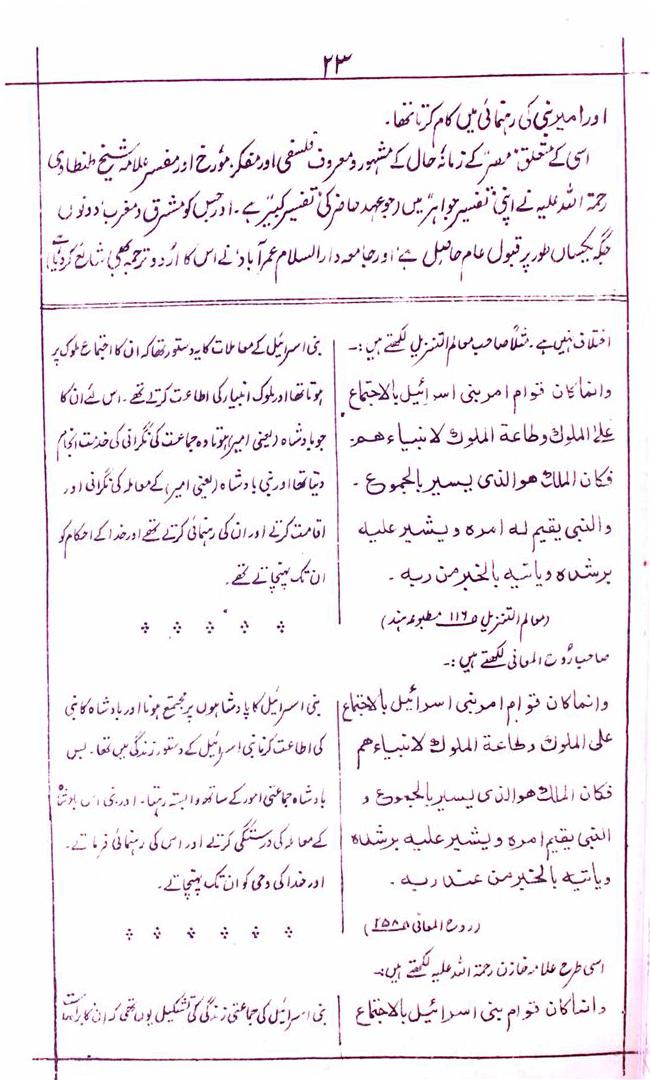 ۲۳
اور امیر نبی کی رہنمائی میں کام کرتا تھا۔
اسی کے متعلق مصر کے زمانۂ حال کے مشہور و معروف فلسفی اور مفکر، مؤرخ اور مفسر علامہ شیخ طنطاوی
رحمۃ اللہ علیہ نے اپنی "تفسیر جواہر" میں (جو عہد حاضر کی تفسیر کبیر ہے۔ اور جس کو مشرق و مغرب دونوں
جگہ یکساں طور پر قبول عام حاصل ہے اور جامعہ دارالسلام عمرآباد نے اس کا اردو ترجمہ بھی شائع کر دیا ہے)
اختلاف نہیں ہے۔ مثلاً صاحب معالم التنزیل لکھتے ہیں:۔
وانما كان قوام امر بنی اسرائیل بالاجتماع
علی الملوك وطاعة الملوك لانبیاء هم۔
فكان الملك هو الذی یسیر بالجموع۔
والنبی یقیم له امره ویشیر علیه
برشده ویاتیه بالخبر من ربه۔
(معالم التنزیل ص۱۱۶ مطبوعہ ہند)
بنی اسرائیل کے معاملات کا یہ دستور تھا کہ ان کا اجتماع ملوک پر
ہوتا تھا اور ملوک انبیار کی اطاعت کرتے تھے۔ اس لئے ان کا
جو بادشاہ (یعنی امیر) ہوتا وہ جماعت کی نگرانی کی خدمت انجام
دیتا تھا اور نبی بادشاہ (یعنی امیر) کے معاملہ کی نگرانی اور
اقامت کرتے اور ان کی رہنمائی کرتے تھے اور خدا کے احکام کو
ان تک پہنچاتے تھے۔
صاحب رُوح المعانی لکھتے ہیں:۔
وانما كان قوام امر بنی اسرائیل بالاجتماع
علی الملوك وطاعة الملوك لانبیاء هم
فكان الملك هو الذی یسیر بالجموع و
النبی یقیم امره ویشیر علیه برشده
ویاتیه بالخبر من عند ربه۔
(روح المعانی ص۲۵۸)
بنی اسرائیل کا پادشاہوں پر مجتمع ہونا اور بادشاہ کا نبی
کی اطاعت کرنا بنی اسرائیل کے دستور زندگی میں تھا۔ بس
بادشاہ جماعتی امور کے ساتھ وابستہ رہتا۔ اور نبی اس بادشاہ
کے معاملہ کی درستگی کرتے اور اس کی رہنمائی فرماتے۔
اور خدا کی وحی کو ان تک پہنچاتے۔
اسی طرح علامہ خازن رحمۃ اللہ علیہ لکھتے ہیں:۔
وانما كان قوام بنی اسرائیل بالاجتماع
بنی اسرائیل کی جماعتی زندگی کی تشکیل یوں تھی کہ ان کا